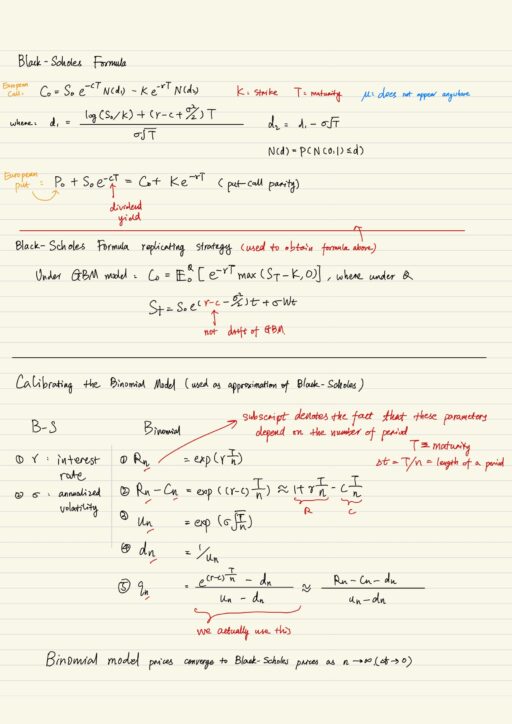 Black-Scholes Formula
European Call: C₀ = S₀ e^{-cT} N(d₁) - K e^{-rT} N(d₂) K: strike T: maturity μ: does not appear anywhere
where: d₁ = (log(S₀/K) + (r-c+σ²/2) T) / (σ√T) d₂ = d₁ - σ√T
N(d) = P(N(0,1) ≤ d)
European put: P₀ + S₀ e^{-cT} = C₀ + K e^{-rT} (put-call parity)
dividend yield
Black-Scholes Formula replicating strategy (used to obtain formula above)
Under GBM model: C₀ = E₀^Q [e^{-rT} max(S_T - K, 0)], where under Q
S_t = S₀ e^{(r-c-σ²/2)t + σW_t}
not drift of GBM
Calibrating the Binomial Model (used as approximation of Black-Scholes)
subscript denotes the fact that these parameters
depend on the number of period
B-S Binomial
T ≡ maturity
Δt = T/n = length of a period
① r : interest rate ① Rₙ = exp(r T/n)
② σ : annualized volatility ② Rₙ - Cₙ = exp((r-c) T/n) ≈ 1 + r T/n - c T/n
R C
③ uₙ = exp(σ√(T/n))
④ dₙ = 1/uₙ
⑤ qₙ = (e^{(r-c) T/n} - dₙ) / (uₙ - dₙ) ≈ (Rₙ - Cₙ - dₙ) / (uₙ - dₙ)
we actually use this
Binomial model prices converge to Black-Scholes prices as n → ∞ (Δt → 0)